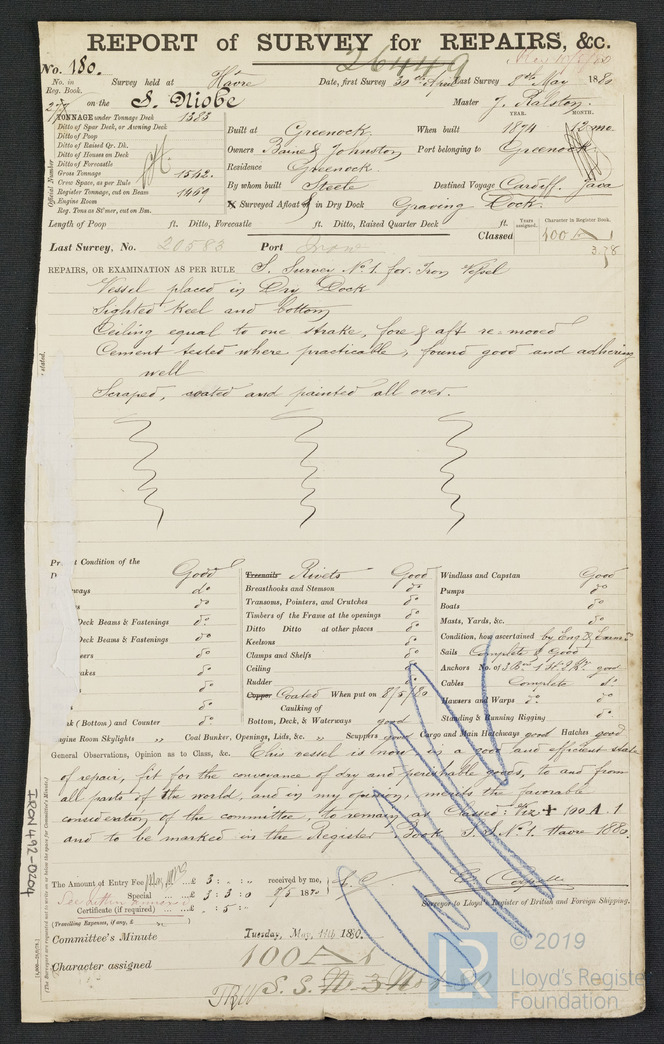 REPORT of SURVEY for REPAIRS, &c.
26449
No. 180.
No. in Reg. Book. Survey held at Havre Date, first Survey 30th April Last Survey 8th May 1880
on the S. Niobe Master J. Ralston.
YEAR. MONTH.
TONNAGE under Tonnage Deck 1383
Ditto of Spar Deck, or Awning Deck
Ditto of Poop
Ditto of Raised Qr. Dk.
Ditto of Houses on Deck
Ditto of Forecastle
Gross Tonnage 1542.
Crew Space, as per Rule
Register Tonnage, cut on Beam 1469
Engine Room
Reg. Tons as St'mer, cut on Bm.
Official Number
Built at Greenock. When built 1874 12 mo
Owners Baine & Johnston Port belonging to Greenock
Residence Greenock
By whom built Steele Destined Voyage Cardiff. Java
X Surveyed Afloat & in Dry Dock Graving Dock.
Length of Poop ft. Ditto, Forecastle ft. Ditto, Raised Quarter Deck ft.
Classed Years assigned. Character in Register Book. 100 A 1
3,78
Last Survey, No. 20583 Port
REPAIRS, OR EXAMINATION AS PER RULE S. Survey No 1 for Iron Vessel
Vessel placed in Dry Dock
Sighted keel and bottom
Ceiling equal to one strake, fore & aft re-moved
Cement tested where practicable, found good and adhering
well
Scraped, coated and painted all over.
Condition of the
Good
do
Deck Beams & Fastenings do
Deck Beams & Fastenings do
do
do
do
(Bottom) and Counter do
Treenails Rivets Good
Breasthooks and Stemson do
Transoms, Pointers, and Crutches do
Timbers of the Frame at the openings do
Ditto Ditto at other places do
Keelsons do
Clamps and Shelfs do
Ceiling do
Rudder do
Copper Coated When put on 8/5/80
Caulking of
Bottom, Deck, & Waterways good
Windlass and Capstan Good
Pumps do
Boats do
Masts, Yards, &c. do
Condition, how ascertained by Eng &
Sails Complete & Good
Anchors No. of good
Cables Complete do
Hawsers and Warps do. do
Standing & Running Rigging do
Engine Room Skylights " Coal Bunker, Openings, Lids, &c. " Scuppers good Cargo and Main Hatchways good Hatches good
General Observations, Opinion as to Class, &c. This vessel is now in a good and efficient state
of repair, fit for the conveyance of dry and perishable goods, to and from
all parts of the world, and in my opinion, merits the favorable
consideration of the committee, to remain as Classed: viz + 100.A.1
and to be marked in the Register Book S.S. No 1. Havre 1880.
The Amount of Entry Fee £ 3 : - : - received by me,
Special £ 3 : 3 : 0 8/5 1880
Certificate (if required) £ . : 5 : -
(Travelling Expenses, if any, £
Surveyor to Lloyd's Register of British and Foreign Shipping.
Committee's Minute Tuesday, May 11th 1880.
Character assigned 100 A 1
IRON 492-0204
© 2019
LR
Lloyd's Register
Foundation